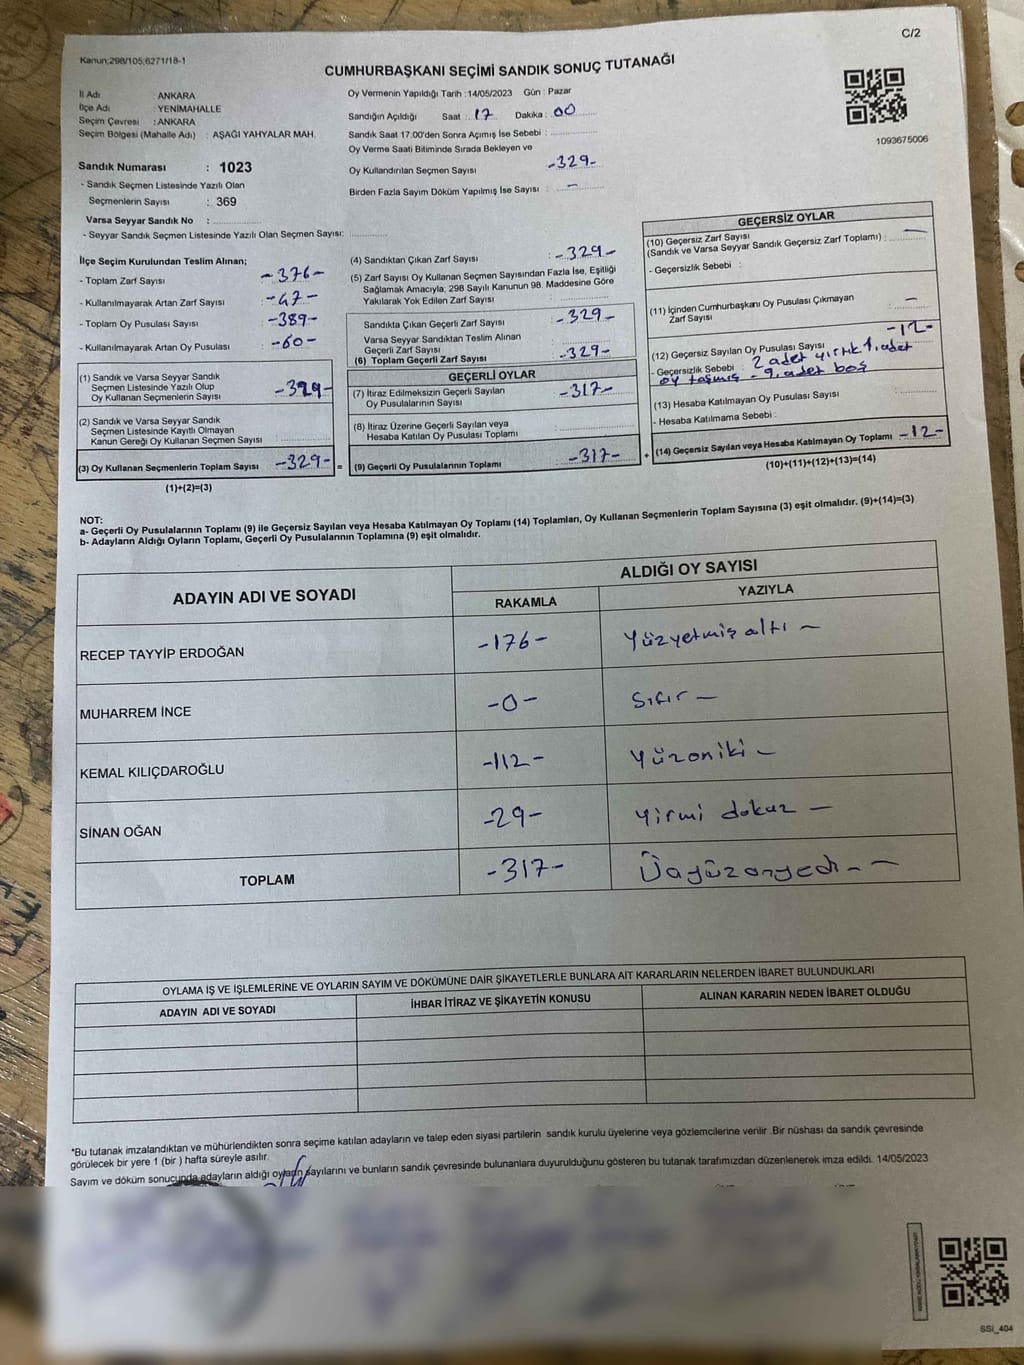 C/2
Kanun;298/105;6271/18-1
CUMHURBAŞKANI SEÇİMİ SANDIK SONUÇ TUTANAĞI
İl Adı : ANKARA
İlçe Adı : YENİMAHALLE
Seçim Çevresi : ANKARA
Seçim Bölgesi (Mahalle Adı) : AŞAĞI YAHYALAR MAH.
Sandık Numarası : 1023
- Sandık Seçmen Listesinde Yazılı Olan
Seçmenlerin Sayısı : 369
Varsa Seyyar Sandık No :
- Seyyar Sandık Seçmen Listesinde Yazılı Olan Seçmen Sayısı:
Oy Vermenin Yapıldığı Tarih : 14/05/2023 Gün : Pazar
Sandığın Açıldığı Saat : 17 Dakika : 00
Sandık Saat 17.00'den Sonra Açımış İse Sebebi :
Oy Verme Saati Bitiminde Sırada Bekleyen ve
Oy Kullandırılan Seçmen Sayısı -329-
Birden Fazla Sayım Döküm Yapılmış İse Sayısı : -
1093675006
İlçe Seçim Kurulundan Teslim Alınan;
- Toplam Zarf Sayısı : -376-
- Kullanılmayarak Artan Zarf Sayısı : -47-
- Toplam Oy Pusulası Sayısı : -389-
- Kullanılmayarak Artan Oy Pusulası : -60-
(1) Sandık ve Varsa Seyyar Sandık
Seçmen Listesinde Yazılı Olup
Oy Kullanan Seçmenlerin Sayısı : -329-
(2) Sandık ve Varsa Seyyar Sandık
Seçmen Listesinde Kayıtlı Olmayan
Kanun Gereği Oy Kullanan Seçmen Sayısı :
(3) Oy Kullanan Seçmenlerin Toplam Sayısı -329-
(1)+(2)=(3)
(4) Sandıktan Çıkan Zarf Sayısı : -329-
(5) Zarf Sayısı Oy Kullanan Seçmen Sayısından Fazla İse, Eşitliği
Sağlamak Amacıyla; 298 Sayılı Kanunun 98. Maddesine Göre
Yakılarak Yok Edilen Zarf Sayısı :
Sandıkta Çıkan Geçerli Zarf Sayısı : -329-
Varsa Seyyar Sandıktan Teslim Alınan
Geçerli Zarf Sayısı :
(6) Toplam Geçerli Zarf Sayısı : -329-
GEÇERLİ OYLAR
(7) İtiraz Edilmeksizin Geçerli Sayılan
Oy Pusulalarının Sayısı : -317-
(8) İtiraz Üzerine Geçerli Sayılan veya
Hesaba Katılan Oy Pusulası Toplamı :
= (9) Geçerli Oy Pusulalarının Toplamı : -317-
GEÇERSİZ OYLAR
(10) Geçersiz Zarf Sayısı
(Sandık ve Varsa Seyyar Sandık Geçersiz Zarf Toplamı) : -
- Geçersizlik Sebebi :
(11) İçinden Cumhurbaşkanı Oy Pusulası Çıkmayan
Zarf Sayısı : -
(12) Geçersiz Sayılan Oy Pusulası Sayısı : -12-
- Geçersizlik Sebebi : 2 adet yırtık 1. adet
oy taşmış - 9. adet boş
(13) Hesaba Katılmayan Oy Pusulası Sayısı :
- Hesaba Katılmama Sebebi :
+ (14) Geçersiz Sayılan veya Hesaba Katılmayan Oy Toplamı -12-
(10)+(11)+(12)+(13)=(14)
NOT:
a- Geçerli Oy Pusulalarının Toplamı (9) ile Geçersiz Sayılan veya Hesaba Katılmayan Oy Toplamı (14) Toplamları, Oy Kullanan Seçmenlerin Toplam Sayısına (3) eşit olmalıdır. (9)+(14)=(3)
b- Adayların Aldığı Oyların Toplamı, Geçerli Oy Pusulalarının Toplamına (9) eşit olmalıdır.
ADAYIN ADI VE SOYADI ALDIĞI OY SAYISI
RAKAMLA YAZIYLA
RECEP TAYYİP ERDOĞAN -176- Yüzyetmiş altı -
MUHARREM İNCE -0- Sıfır -
KEMAL KILIÇDAROĞLU -112- Yüzoniki -
SİNAN OĞAN -29- Yirmi dokuz -
TOPLAM -317- Üçyüzonyedi - -
OYLAMA İŞ VE İŞLEMLERİNE VE OYLARIN SAYIM VE DÖKÜMÜNE DAİR ŞİKAYETLERLE BUNLARA AİT KARARLARIN NELERDEN İBARET BULUNDUKLARI
ADAYIN ADI VE SOYADI İHBAR İTİRAZ VE ŞİKAYETİN KONUSU ALINAN KARARIN NEDEN İBARET OLDUĞU
*Bu tutanak imzalandıktan ve mühürlendikten sonra seçime katılan adayların ve talep eden siyasi partilerin sandık kurulu üyelerine veya gözlemcilerine verilir. Bir nüshası da sandık çevresinde
görülecek bir yere 1 (bir ) hafta süreyle asılır.
Sayım ve döküm sonucunda adayların aldığı oyların sayılarını ve bunların sandık çevresinde bulunanlara duyurulduğunu gösteren bu tutanak tarafımızdan düzenlenerek imza edildi. 14/05/2023
SSİ_404